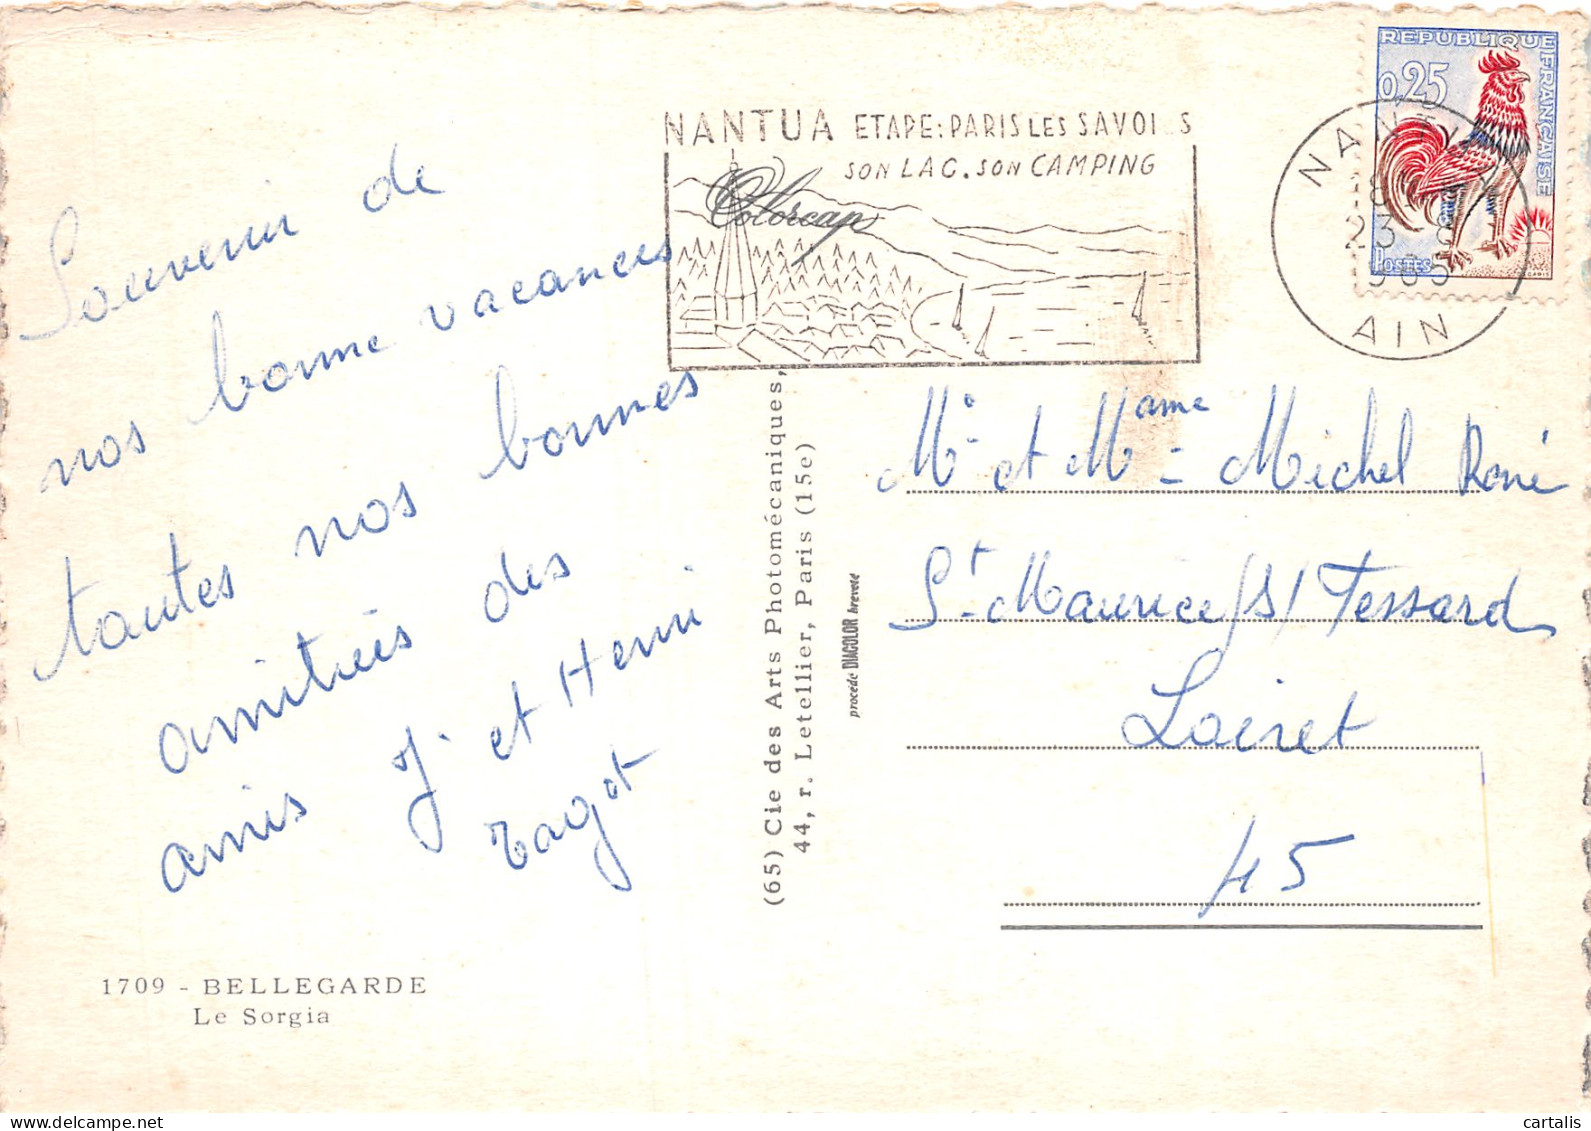 Souvenir de
nos bonne vacances
toutes nos bonnes
amitiés des
amis J. et Henri
Ragot
1709 - BELLEGARDE
Le Sorgia
NANTUA ETAPE: PARIS LES SAVOI S
SON LAC. SON CAMPING
Colorcap
REPUBLIQUE FRANÇAISE
0,25
POSTES
NANTUA
18
23 8
1965
AIN
(65) Cie des Arts Photomécaniques,
44, r. Letellier, Paris (15e)
procédé DIACOLOR breveté
Mr et Mame - Michel René
St-Maurice/s/Fessard
Loiret
45
cartalis
www.delcampe.net